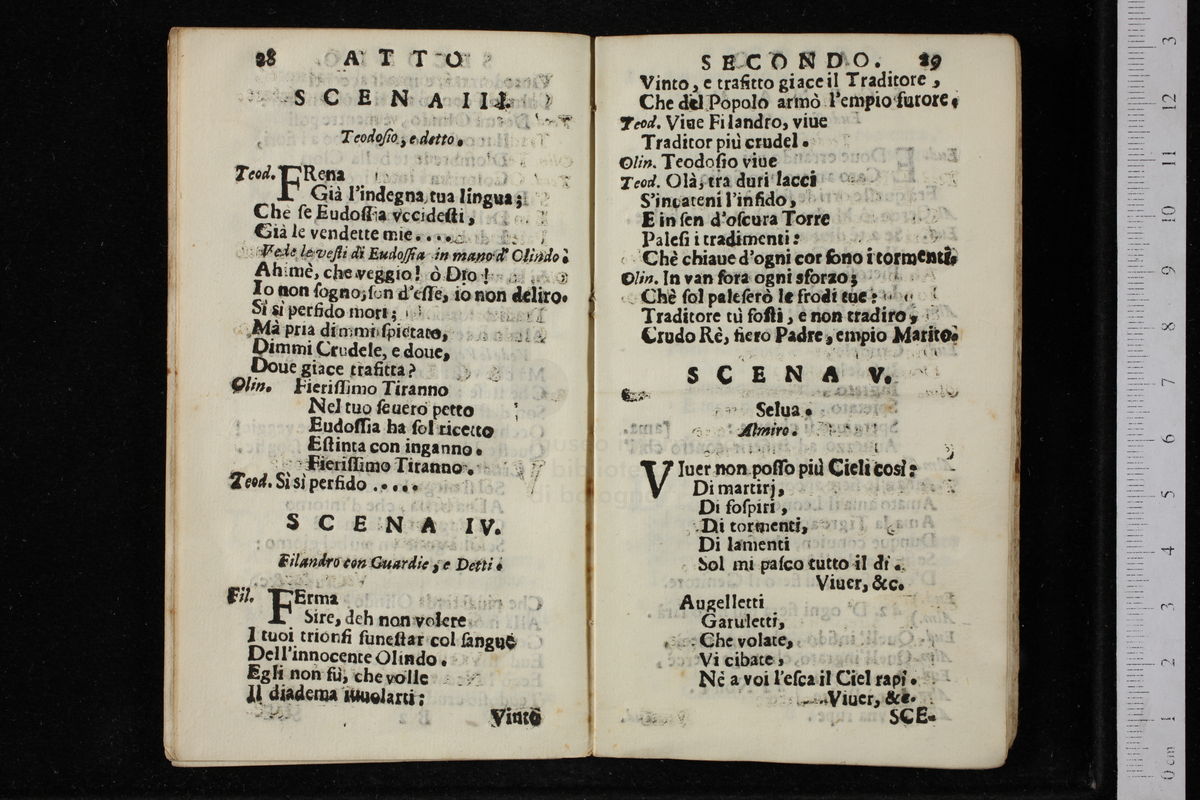 28 ATTO
SCENA III.
Teodosio, e detto.
Teod. FRena
Già l'indegna tua lingua;
Che se Eudossia vccidesti,
Già le vendette mie....
Vede le vesti di Eudossia in mano d'Olindo.
Ahimè, che veggio! ò Dio!
Io non sogno, son d'esse, io non deliro.
Sì sì perfido mori;
Mà pria dimmi spietato,
Dimmi Crudele, e doue,
Doue giace trafitta?
Olin. Fierissimo Tiranno
Nel tuo seuero petto
Eudossia ha sol ricetto
Estinta con inganno.
Fierissimo Tiranno.
Teod. Sì sì perfido.....
SCENA IV.
Filandro con Guardie, e Detti.
Fil. FErma
Sire, deh non volere
I tuoi trionfi funestar col sangue
Dell'innocente Olindo.
Egli non fù, che volle
Il diadema inuolarti:
Vinto
SECONDO. 29
Vinto, e trafitto giace il Traditore,
Che del Popolo armò l'empio furore.
Teod. Viue Filandro, viue
Traditor più crudel.
Olin. Teodosio viue
Teod. Olà, tra duri lacci
S'incateni l'infido,
E in sen d'oscura Torre
Palesi i tradimenti:
Chè chiaue d'ogni cor sono i tormenti.
Olin. In van fora ogni sforzo;
Chè sol paleserò le frodi tue:
Traditore tù fosti, e non tradiro,
Crudo Rè, fiero Padre, empio Marito.
SCENA V.
Selua.
Almiro.
VIuer non posso più Cieli così:
Di martirj,
Di sospiri,
Di tormenti,
Di lamenti
Sol mi pasco tutto il dì.
Viuer, &c.
Augelletti
Garuletti,
Che volate,
Vi cibate,
Nè a voi l'esca il Ciel rapì.
Viuer, &c.
SCE-